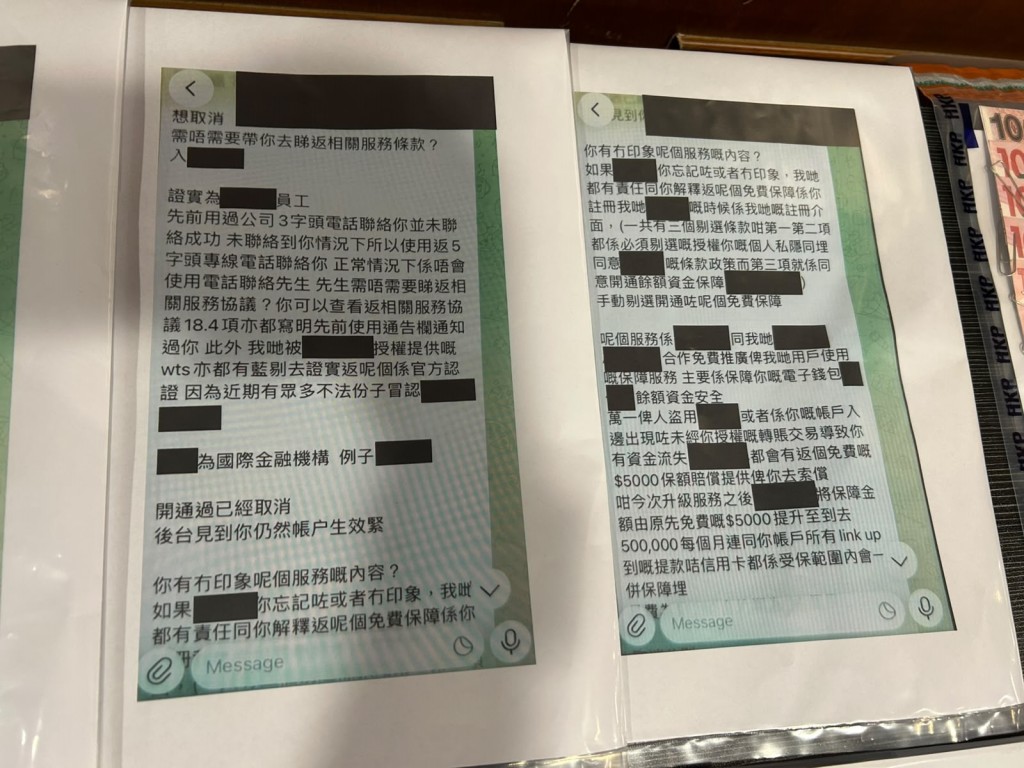 想取消
需唔需要帶你去睇返相關服務條款？
入
證實為 員工
先前用過公司3字頭電話聯絡你並未聯
絡成功 未聯絡到你情況下所以使用返5
字頭專線電話聯絡你 正常情況下係唔會
使用電話聯絡先生 先生需唔需要睇返相
關服務協議？你可以查看返相關服務協
議18.4項亦都寫明先前使用通告欄通知
過你 此外 我哋被 授權提供嘅
wts亦都有藍剔去證實返呢個係官方認
證 因為近期有眾多不法份子冒認
為國際金融機構 例子
開通過已經取消
後台見到你仍然帳户生效緊
你有冇印象呢個服務嘅內容？
如果 你忘記咗或者冇印象，我哋
都有責任同你解釋返呢個免費保障係你
Message
見到你
你有冇印象呢個服務嘅內容？
如果 你忘記咗或者冇印象，我哋
都有責任同你解釋返呢個免費保障係你
註冊我哋 嘅時候係我哋嘅註冊介
面，(一共有三個剔選條款咁第一第二項
都係必須剔選嘅授權你嘅個人私隱同埋
同意 嘅條款政策而第三項就係同
意開通餘額資金保障 )
手動剔選開通咗呢個免費保障
呢個服務係 同我哋
合作免費推廣俾我哋用戶使用
嘅保障服務 主要係保障你嘅電子錢包
餘額資金安全
萬一俾人盜用 或者係你嘅帳戶入
邊出現咗未經你授權嘅轉賬交易導致你
有資金流失 都會有返個免費嘅
$5000保額賠償提供俾你去索償
咁今次升級服務之後 將保障金
額由原先免費嘅$5000提升至到去
500,000每個月連同你帳戶所有link up
到嘅提款咭信用卡都係受保範圍內會一
併保障埋
Message
HKP
HKP
HKP
HKP
HKP
10